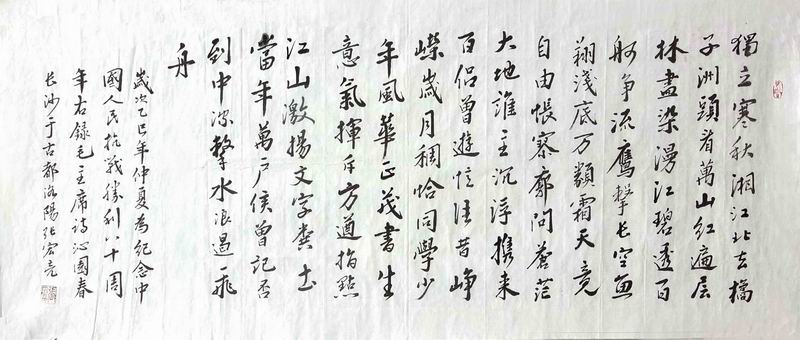 獨立寒秋湘江北去橘
子洲頭看萬山紅遍层
林盡染漫江碧透百
舸争流鷹擊长空魚
翔淺底万類霜天竞
自由悵寥廓問蒼茫
大地誰主沉浮携来
百侣曾遊忆往昔峥
嶸歲月稠恰同學少
年風華正茂書生
意氣揮斥方遒指點
江山激揚文字粪土
當年萬户侯曾記否
到中流擊水浪遏飛
舟
歲次乙巳年仲夏為紀念中
國人民抗戰勝利八十周
年右錄毛主席詩沁園春
长沙于古都洛陽张宏亮